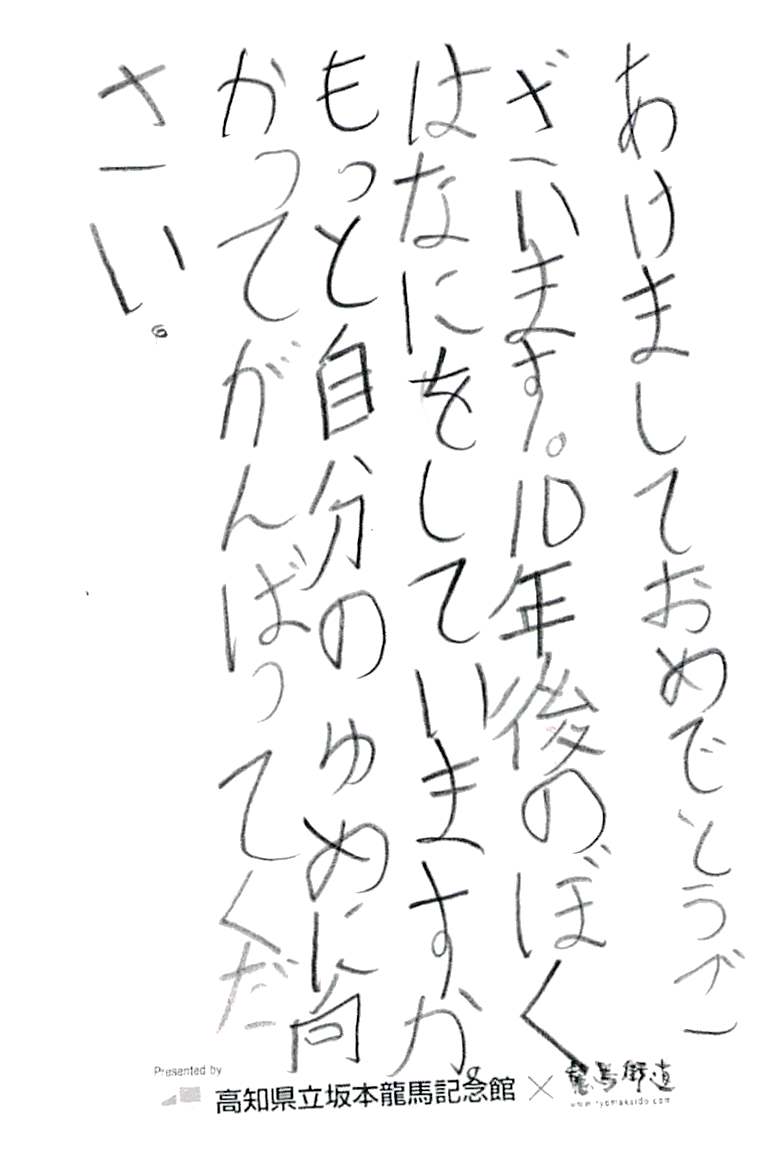 あけましておめでとうご
ざいます。10年後のぼく
はなにをしていますか。
もっと自分のゆめに向
かってがんばってくだ
さい。
Presented by
高知県立坂本龍馬記念館×龍馬街道
www.ryomakaido.com